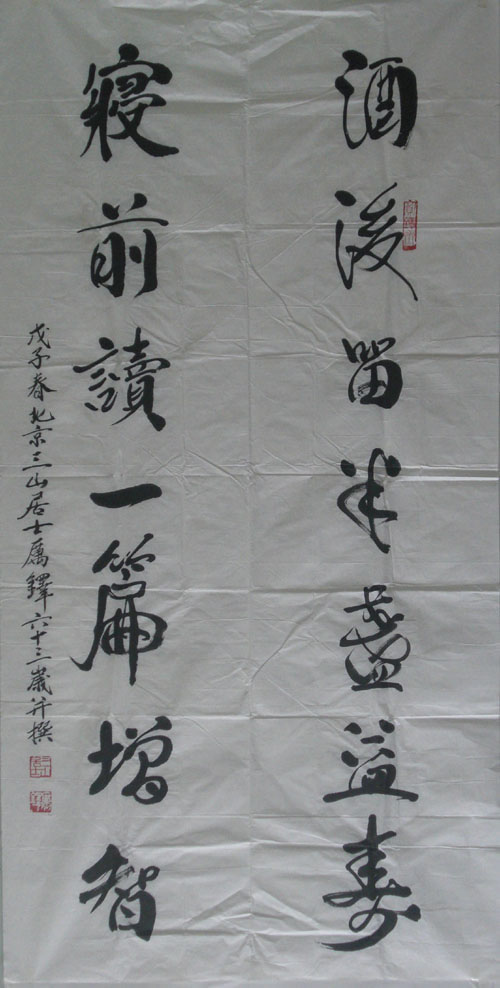 酒後留半盞益壽
寢前讀一篇增智
戊子春北京三山居士厲鐸六十三歲并撰